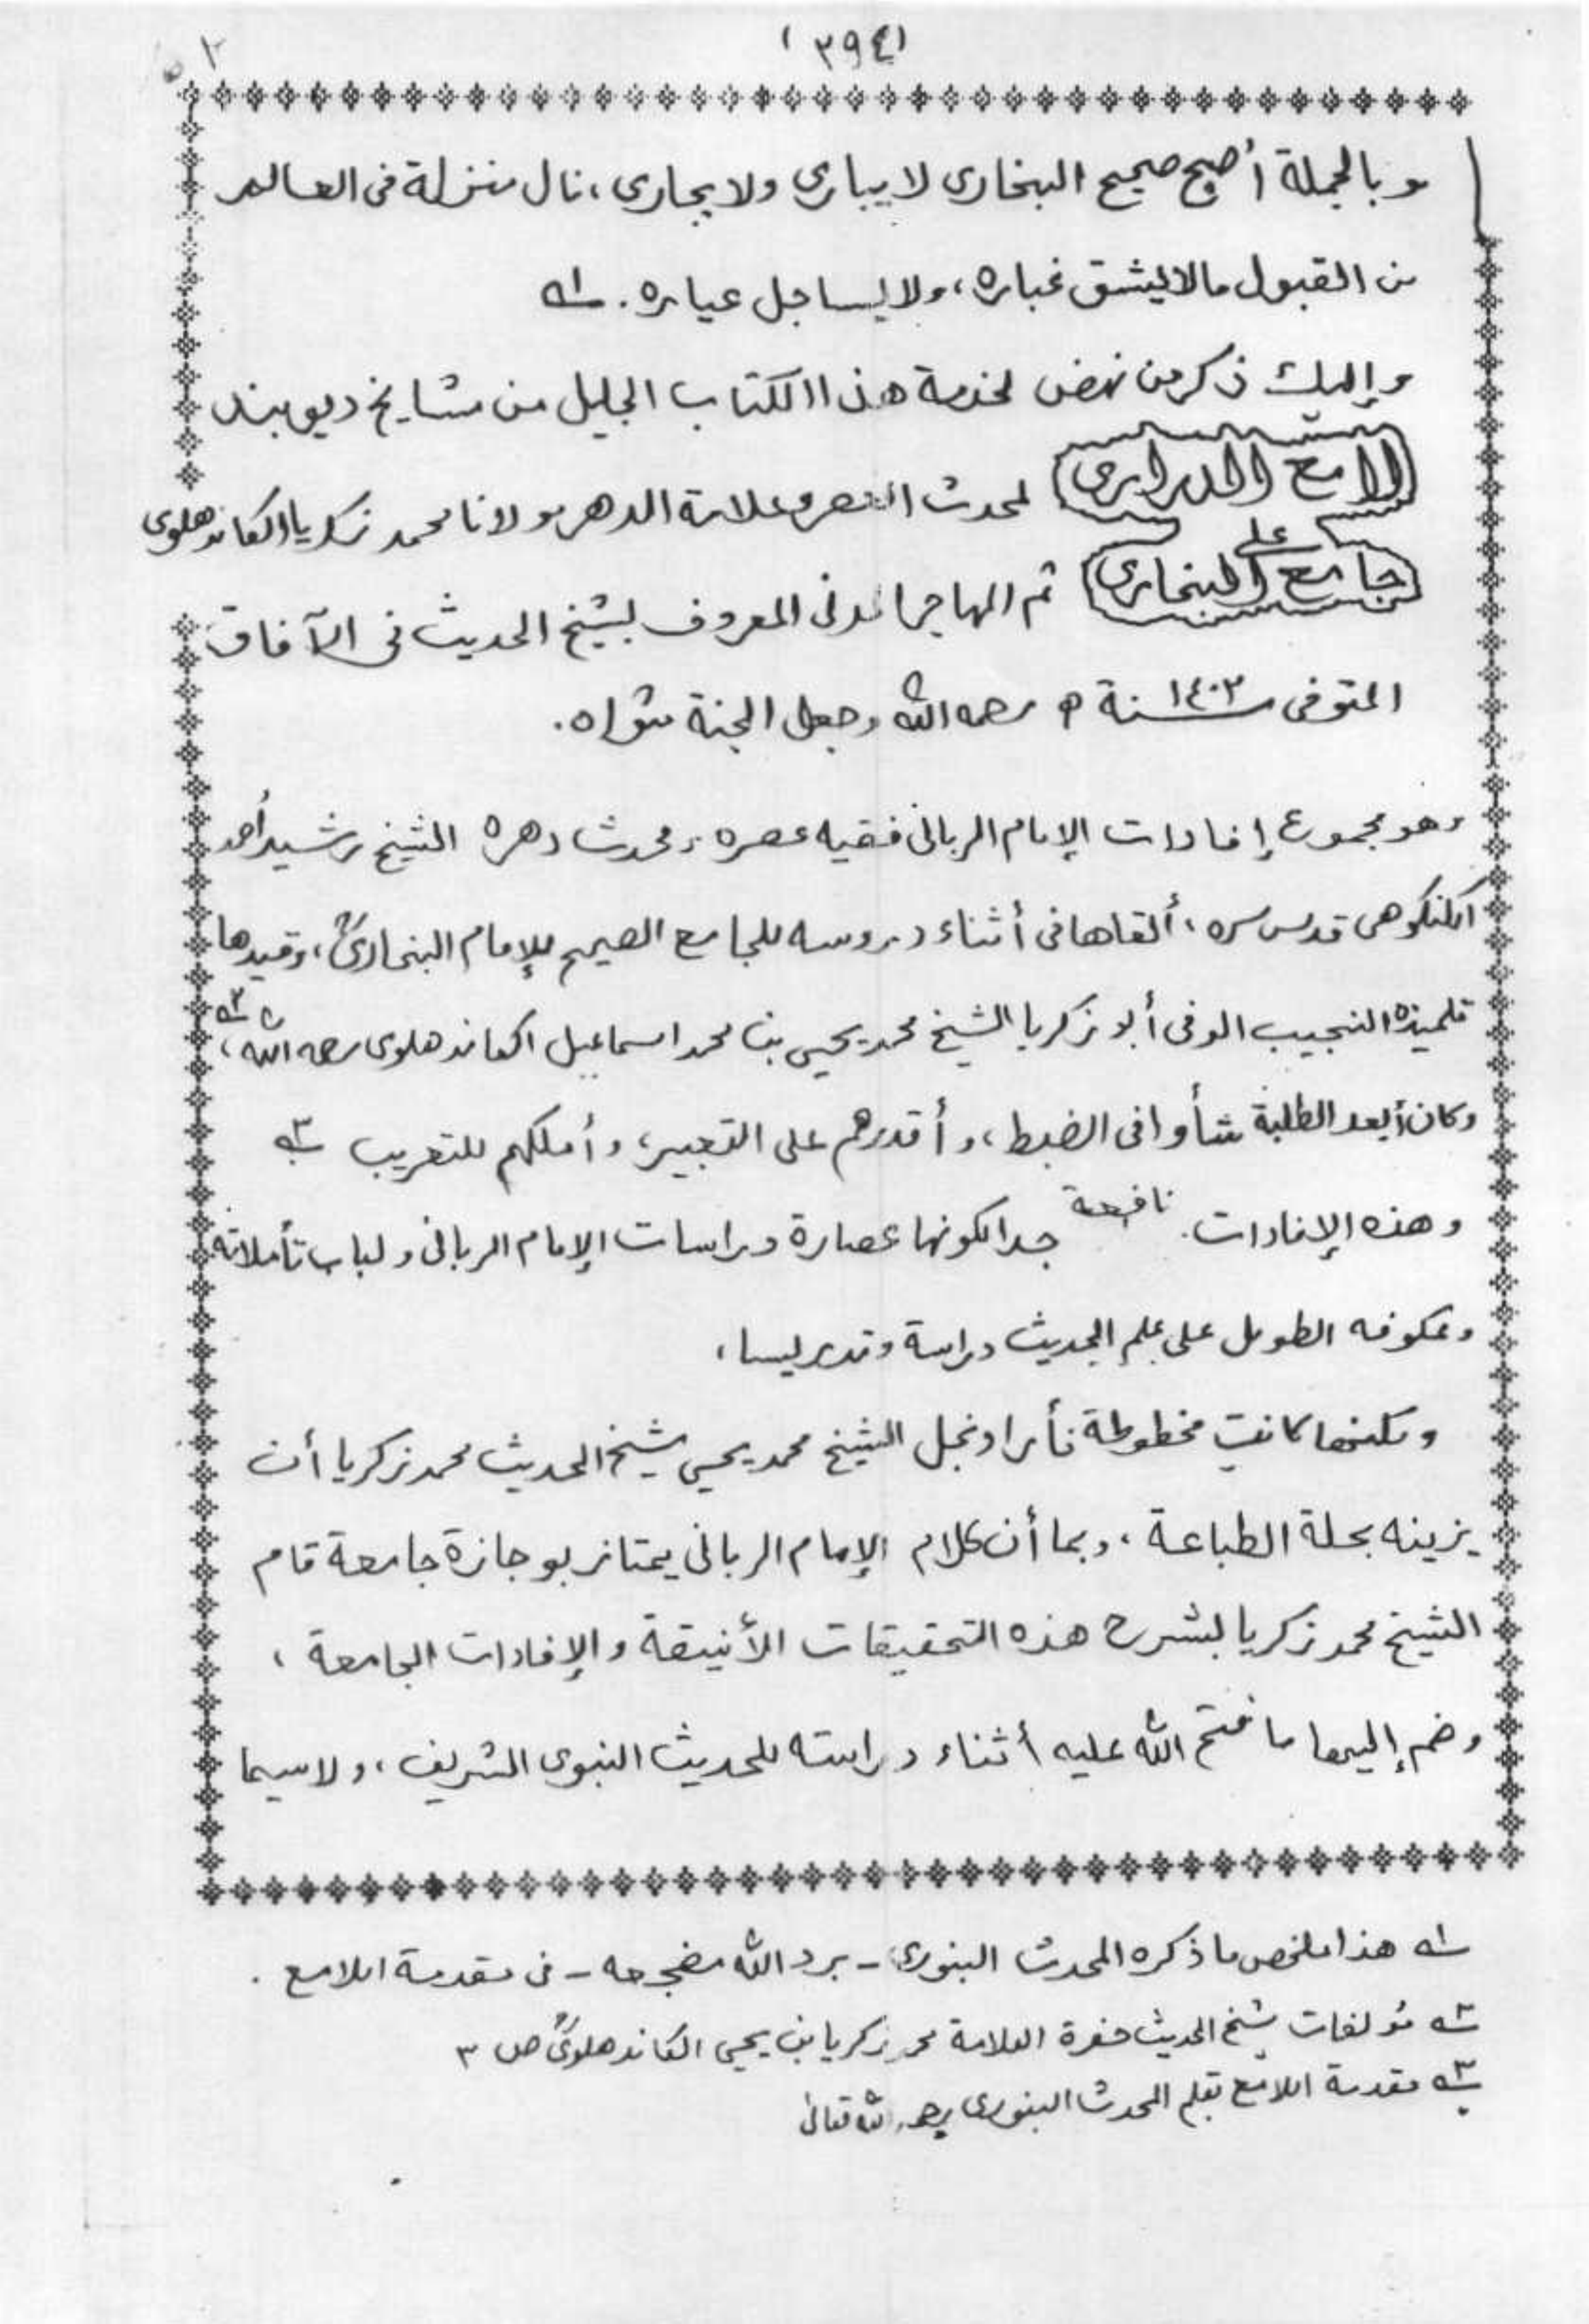 (٣٩٤)
وبالجملة أصبح صحيح البخاري لا يبارى ولا يجارى، نال منزلة فى العالم
من القبول مالا يشق غباره، ولا يساجل عياره. ١ـه
وإليك ذكر من نهض لخدمة هذا الكتاب الجليل من مشايخ ديوبند
لامع الدرارى لمحدث العصر وعلامة الدهر مولانا محمد زكريا الكاندهلوى
على
جامع البخارى ثم المهاجر المدنى المعروف بشيخ الحديث فى الآفاق
المتوفى سنة ١٤٠٢ ه رحمه الله وجعل الجنة مثواه.
وهو مجموع إفادات الإمام الربانى فقيه عصره ومحدث دهره الشيخ رشيد أحمد
الكنكوهى قدس سره، ألقاها فى أثناء دروسه للجامع الصحيح للإمام البخارىؒ، وقيدها
تلميذه النجيب الوفى أبو زكريا الشيخ محمد يحيى بن محمد اسماعيل الكاندهلوى رحمه الله، ٢ـه
وكان أبعد الطلبة شأوا فى الضبط، وأقدرهم على التعبير، وأملكهم للتعريب ٣ـه
وهذه الإفادات نافعة جدا لكونها عصارة دراسات الإمام الربانى ولباب تأملاته
وعكوفه الطويل على علم الحديث دراسة وتدريسا،
ولكنها كانت مخطوطة فأراد نجل الشيخ محمد يحيى شيخ الحديث محمد زكريا أن
يزينه بحلة الطباعة، وبما أن كلام الإمام الربانى يمتاز بوجازة جامعة قام
الشيخ محمد زكريا بشرح هذه التحقيقات الأنيقة والإفادات الجامعة،
وضم إليها ما فتح الله عليه أثناء دراسته للحديث النبوى الشريف، ولا سيما
١ـه هذا ملخص ما ذكره المحدث البنورى - برد الله مضجعه - فى مقدمة اللامع.
٢ـه مؤلفات شيخ الحديث حضرة العلامة محمد زكريا بن يحيى الكاندهلوىؒ ص ٣
٣ـه مقدمة اللامع بقلم المحدث البنورى رحمه الله تعالى